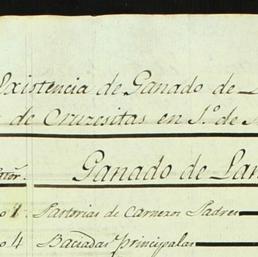 Existencia de Ganado de
de Cruzesitas en 1.º de
Ganado de Lan
o 1. Pastorias de Carneros Padres
o 4 Baciadas principales